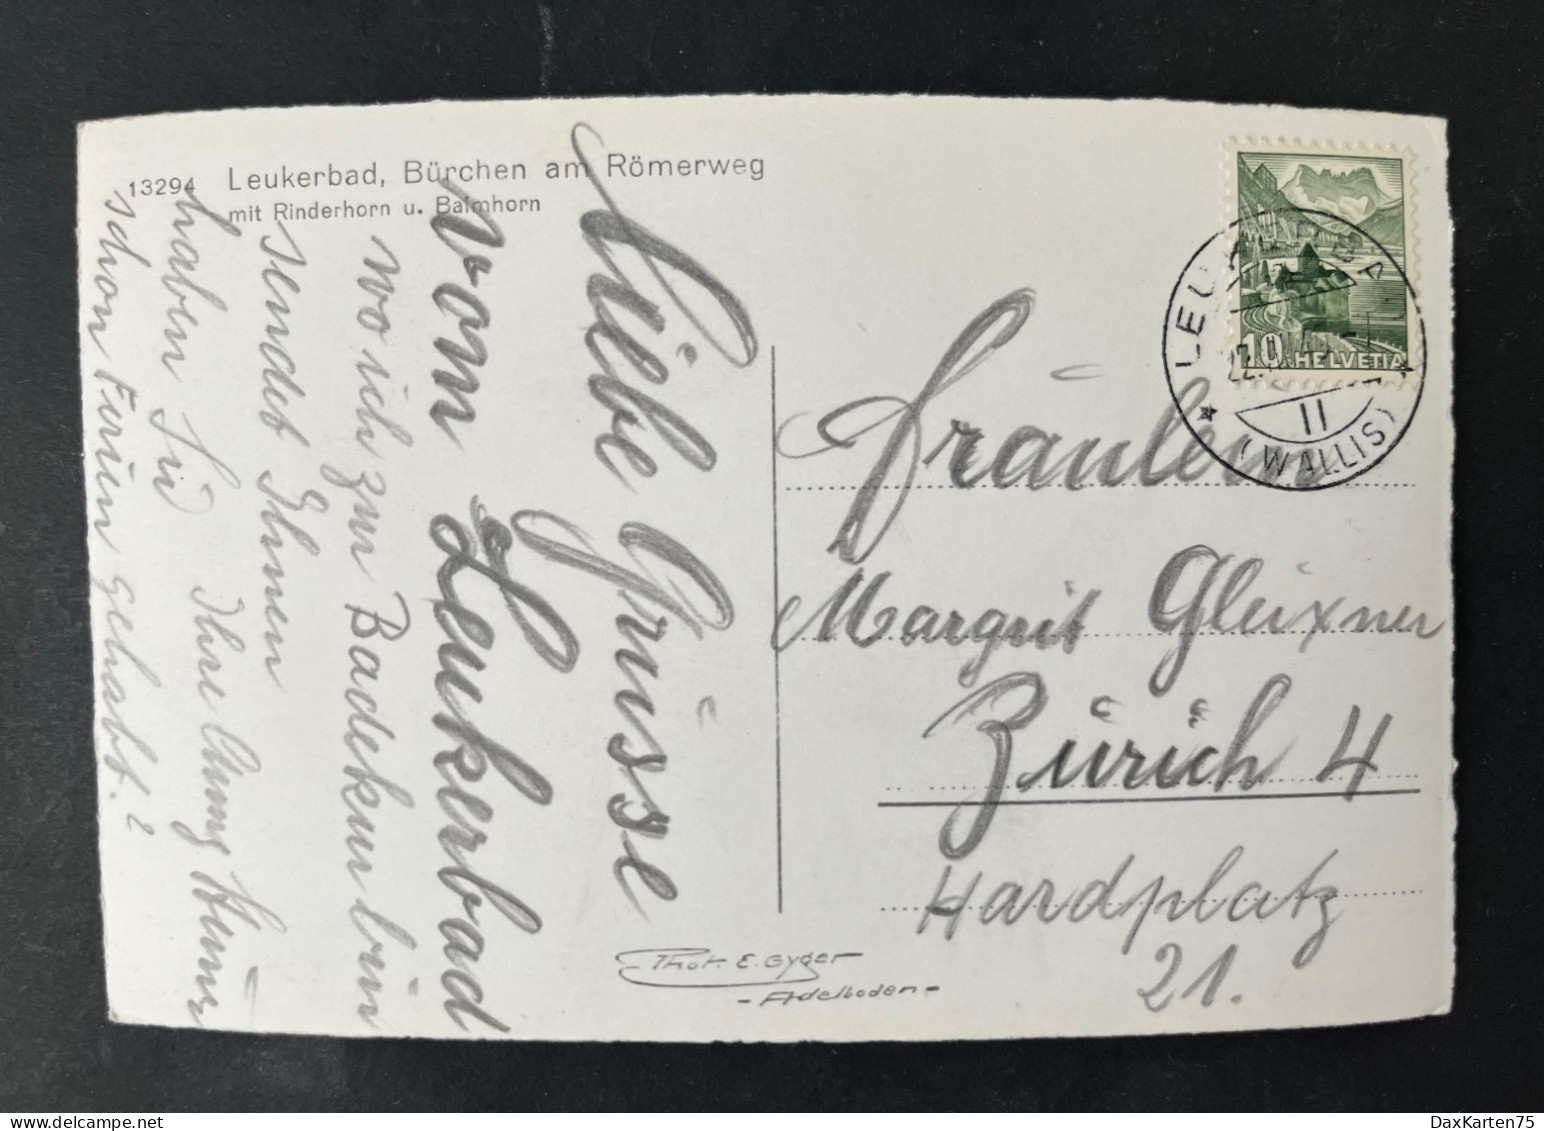 13294 Leukerbad, Bürchen am Römerweg
mit Rinderhorn u. Balmhorn
Liebe Grüsse
vom Leukerbad
wo ich zur Badekur bin
sendet Ihnen
Ihre
haben Sie
schon Ferien gehabt.?
LEUKERBAD
22.
II
(WALLIS)
10 HELVETIA
Fräulein
Margrit Gleixner
Zürich 4
Hardplatz
21.
Phot. E. Gyger
- Adelboden -
DaxKarten75